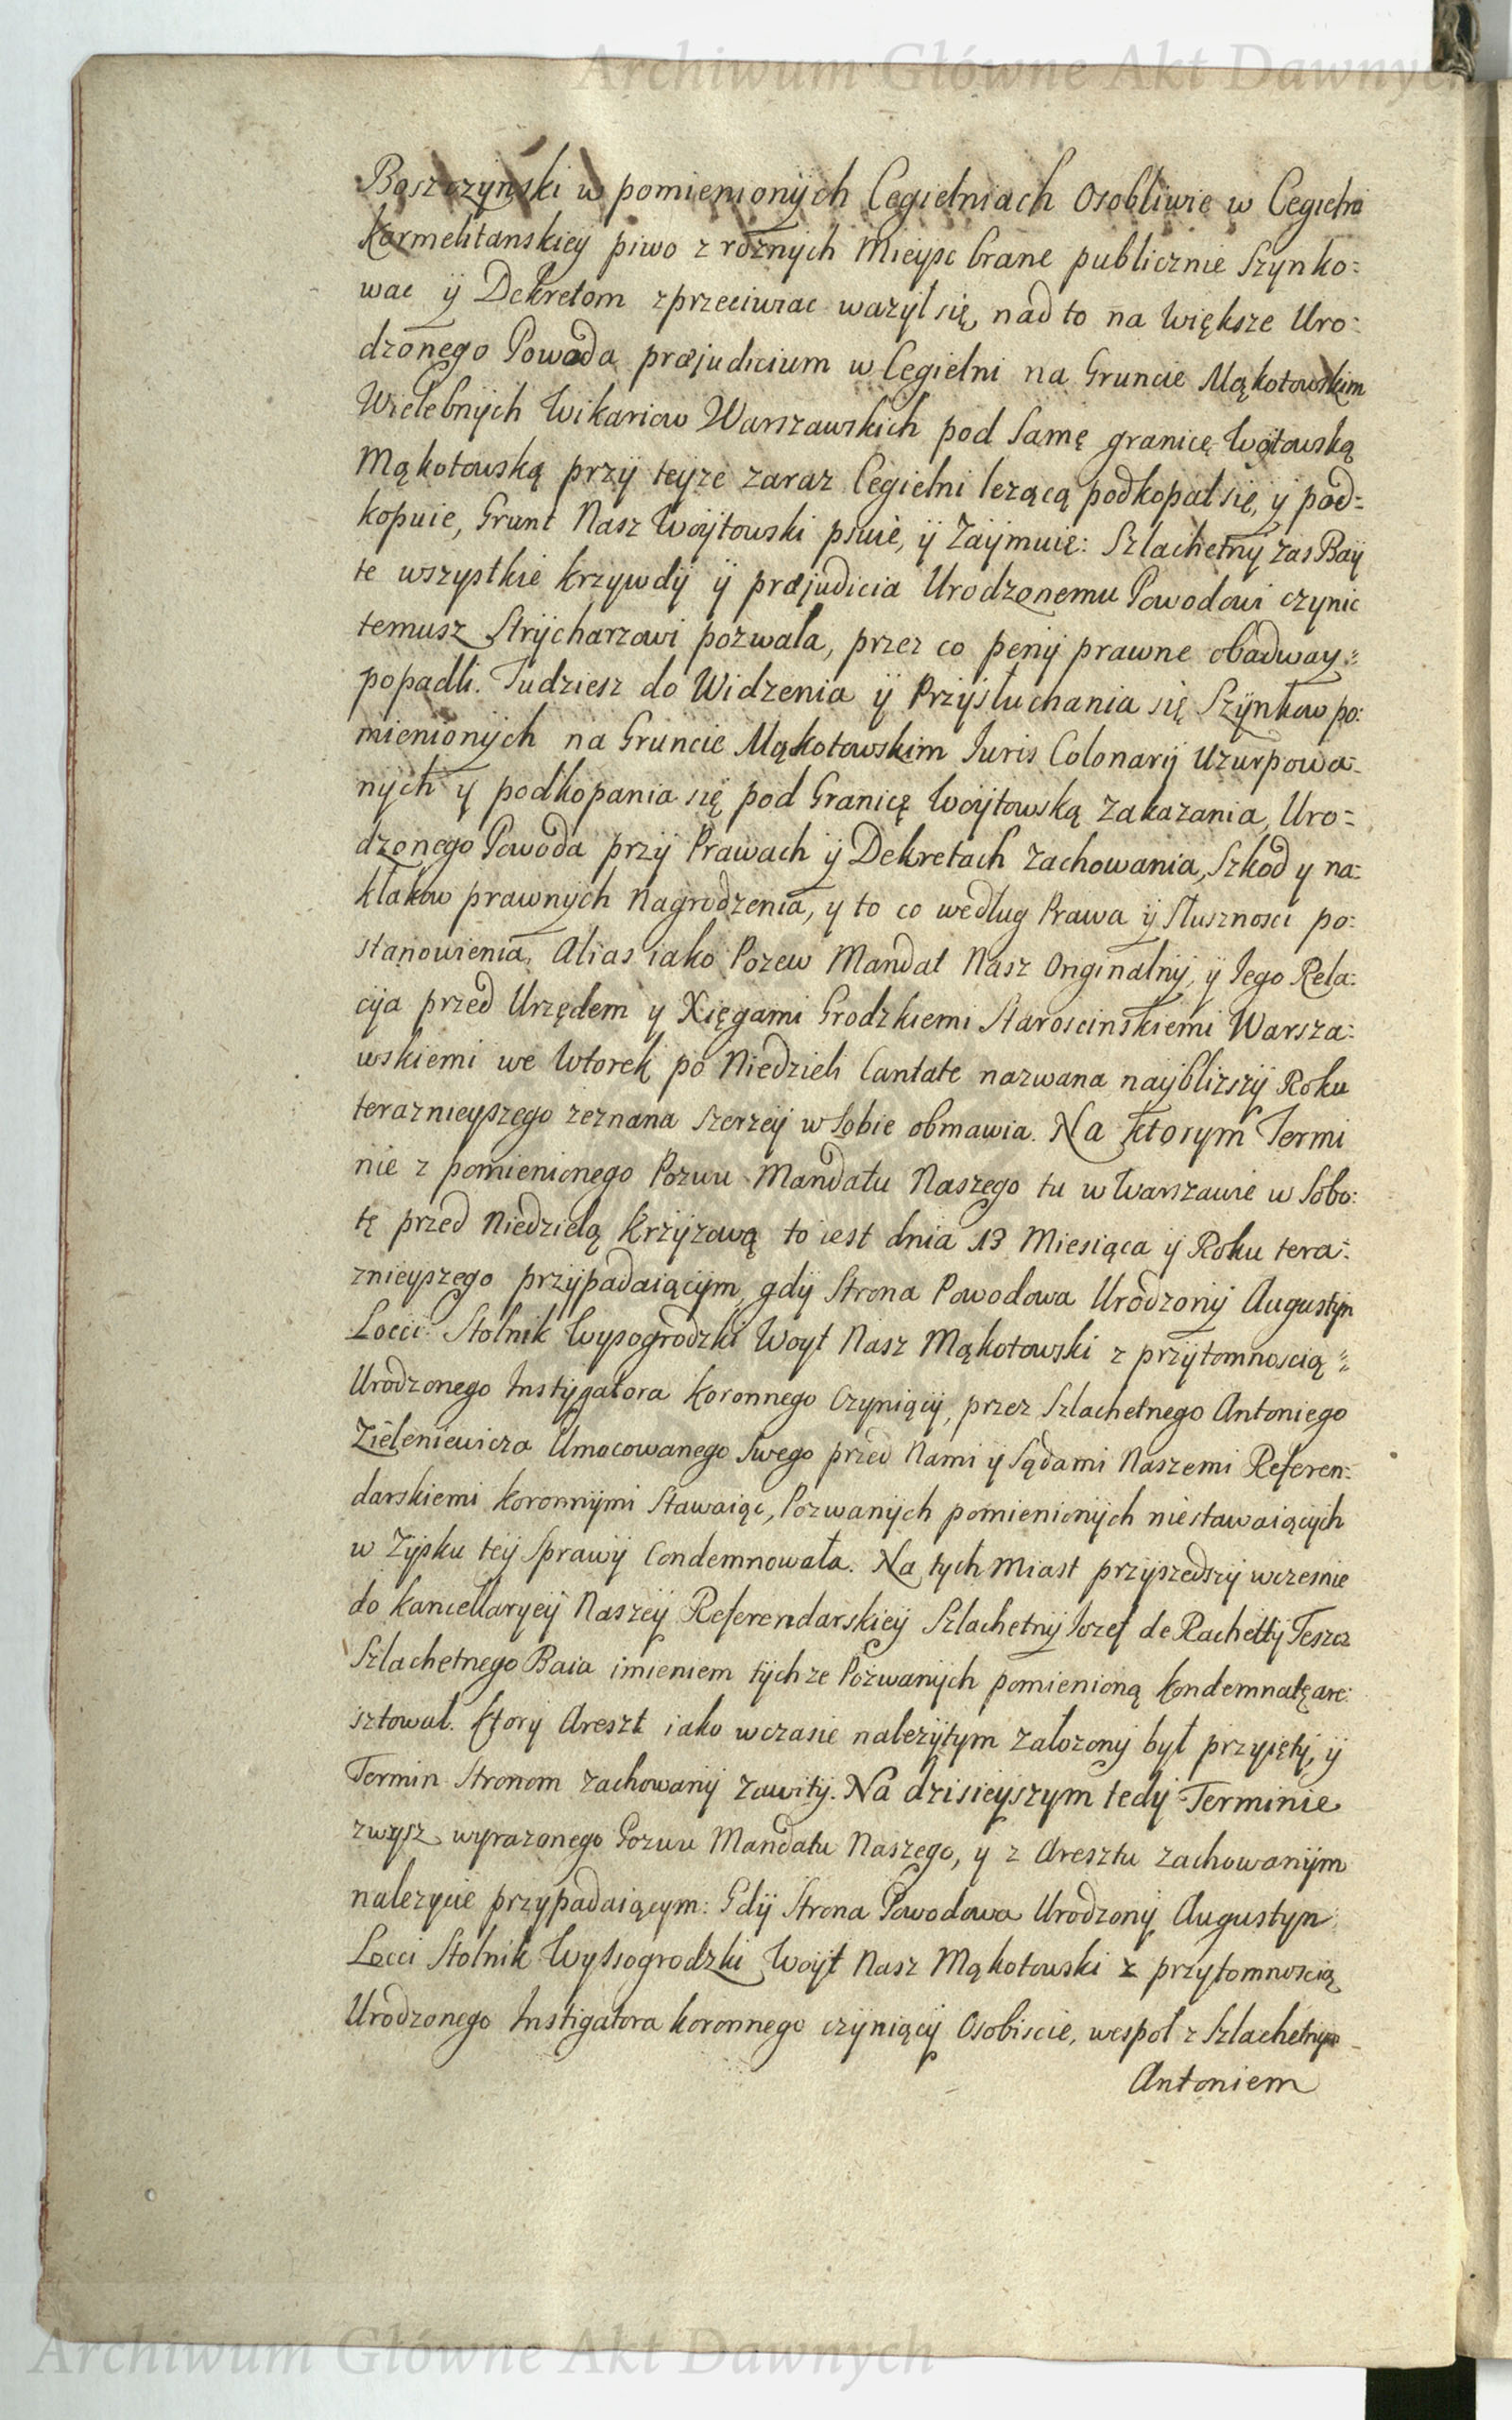 Archiwum Główne Akt Dawnych
Boszczynski w pomienionych Cegielniach osobliwie w Cegielni
Karmelitanskiey piwo z roznych Mieysc brane publicznie Szynko:
wac ÿ Dekretom zprzeciwiac wazył się, nad to na większe Uro:
dzonego Powoda præjudicium w Cegielni na Gruncie Mąkotowskim
Wielebnych Wikariow Warszawskich pod Samę granicę Woÿtowską
Mąkotowską przy teyze zaraz Cegielni lezącą podkopał się, y pod:
kopuie, Grunt Nasz Woÿtowski psuie, ÿ Zaÿmuie: Szlachetny zas Baÿ
te wszystkie krzywdÿ ÿ præjudicia Urodzonemu Powodowi czynic
temusz Strycharzowi pozwala, przez co penÿ prawne obadway:
popadli. Tudziesz do Widzenia ÿ Przÿsłuchania się Szynkow po:
mienionych na Gruncie Mąkotowskim Iuris Colonarÿ Uzurpowa:
nych y podkopania się pod Granicę Woÿtowską zakazania, Uro:
dzonego Powoda przÿ Prawach ÿ Dekretach zachowania, Szkod y na:
kładow prawnych nagrodzenia, y to co według Prawa ÿ Słusznosci po:
stanowienia, Alias iako Pozew Mandat Nasz Originalny, ÿ Iego Rela:
cÿa przed Urzędem y Xięgami Grodzkiemi Staroscinskiemi Warsza:
wskiemi we Wtorek po Niedzieli Cantate nazwana nayblizszÿ Roku
teraznieyszego zeznana szerzeÿ w Sobie obmawia. Na ktorym Termi
nie z pomienionego Pozwu Mandatu Naszego tu w Warszawie w Sobo:
tę przed Niedzielą Krzÿzową to iest dnia 13 Miesiąca ÿ Roku tera:
znieyszego przÿpadaiącÿm, gdÿ Strona Powodowa Urodzonÿ Augustyn
Locci Stolnik Wysogrodzki Woyt Nasz Mąkotowski z przÿtomnoscią
Urodzonego Instygatora Koronnego Czyniącÿ, przez Szlachetnego Antoniego
Zieleniewicza Umocowanego swego przed Nami ÿ Sądami Naszemi Referen:
darskiemi Koronnymi Stawaiąc, Pozwanych pomienionych niestawaiących
w Zysku teÿ Sprawÿ Condemnowała. Na tych miast przyszedszÿ wczesnie
do Kancellaryeÿ Naszeÿ Referendarskieÿ Szlachetnÿ Iozef de Rachettÿ Teszcz
Szlachetnego Baia imieniem tÿchze Pozwanych pomienioną Kondemnatę are:
sztował. Ktory Areszt iako w czasie nalezytym załozonÿ był przyięty, ÿ
Termin Stronom zachowanÿ zawitÿ. Na dzisieyszym tedÿ Terminie
zwysz wyrazonego Pozwu Mandatu Naszego, y z Aresztu zachowanÿm
nalezycie przypadaiącym: Gdÿ Strona Powodowa Urodzonÿ Augustyn
Locci Stolnik Wyssogrodzki Woyt Nasz Mąkotowski z przytomnoscią
Urodzonego Instigatora koronnego czyniącÿ Osobiscie, wespoł z Szlachetnym
Antoniem
Archiwum Główne Akt Dawnych